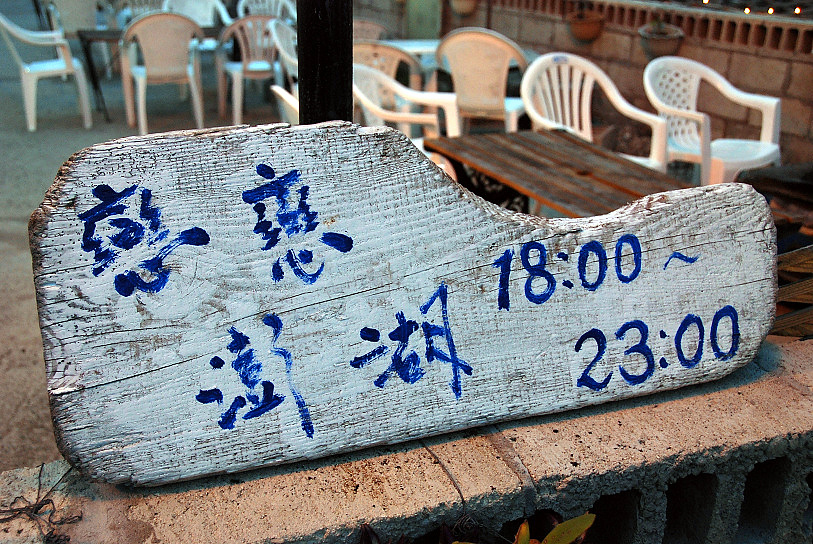 戀戀
澎湖
18:00~
23:00